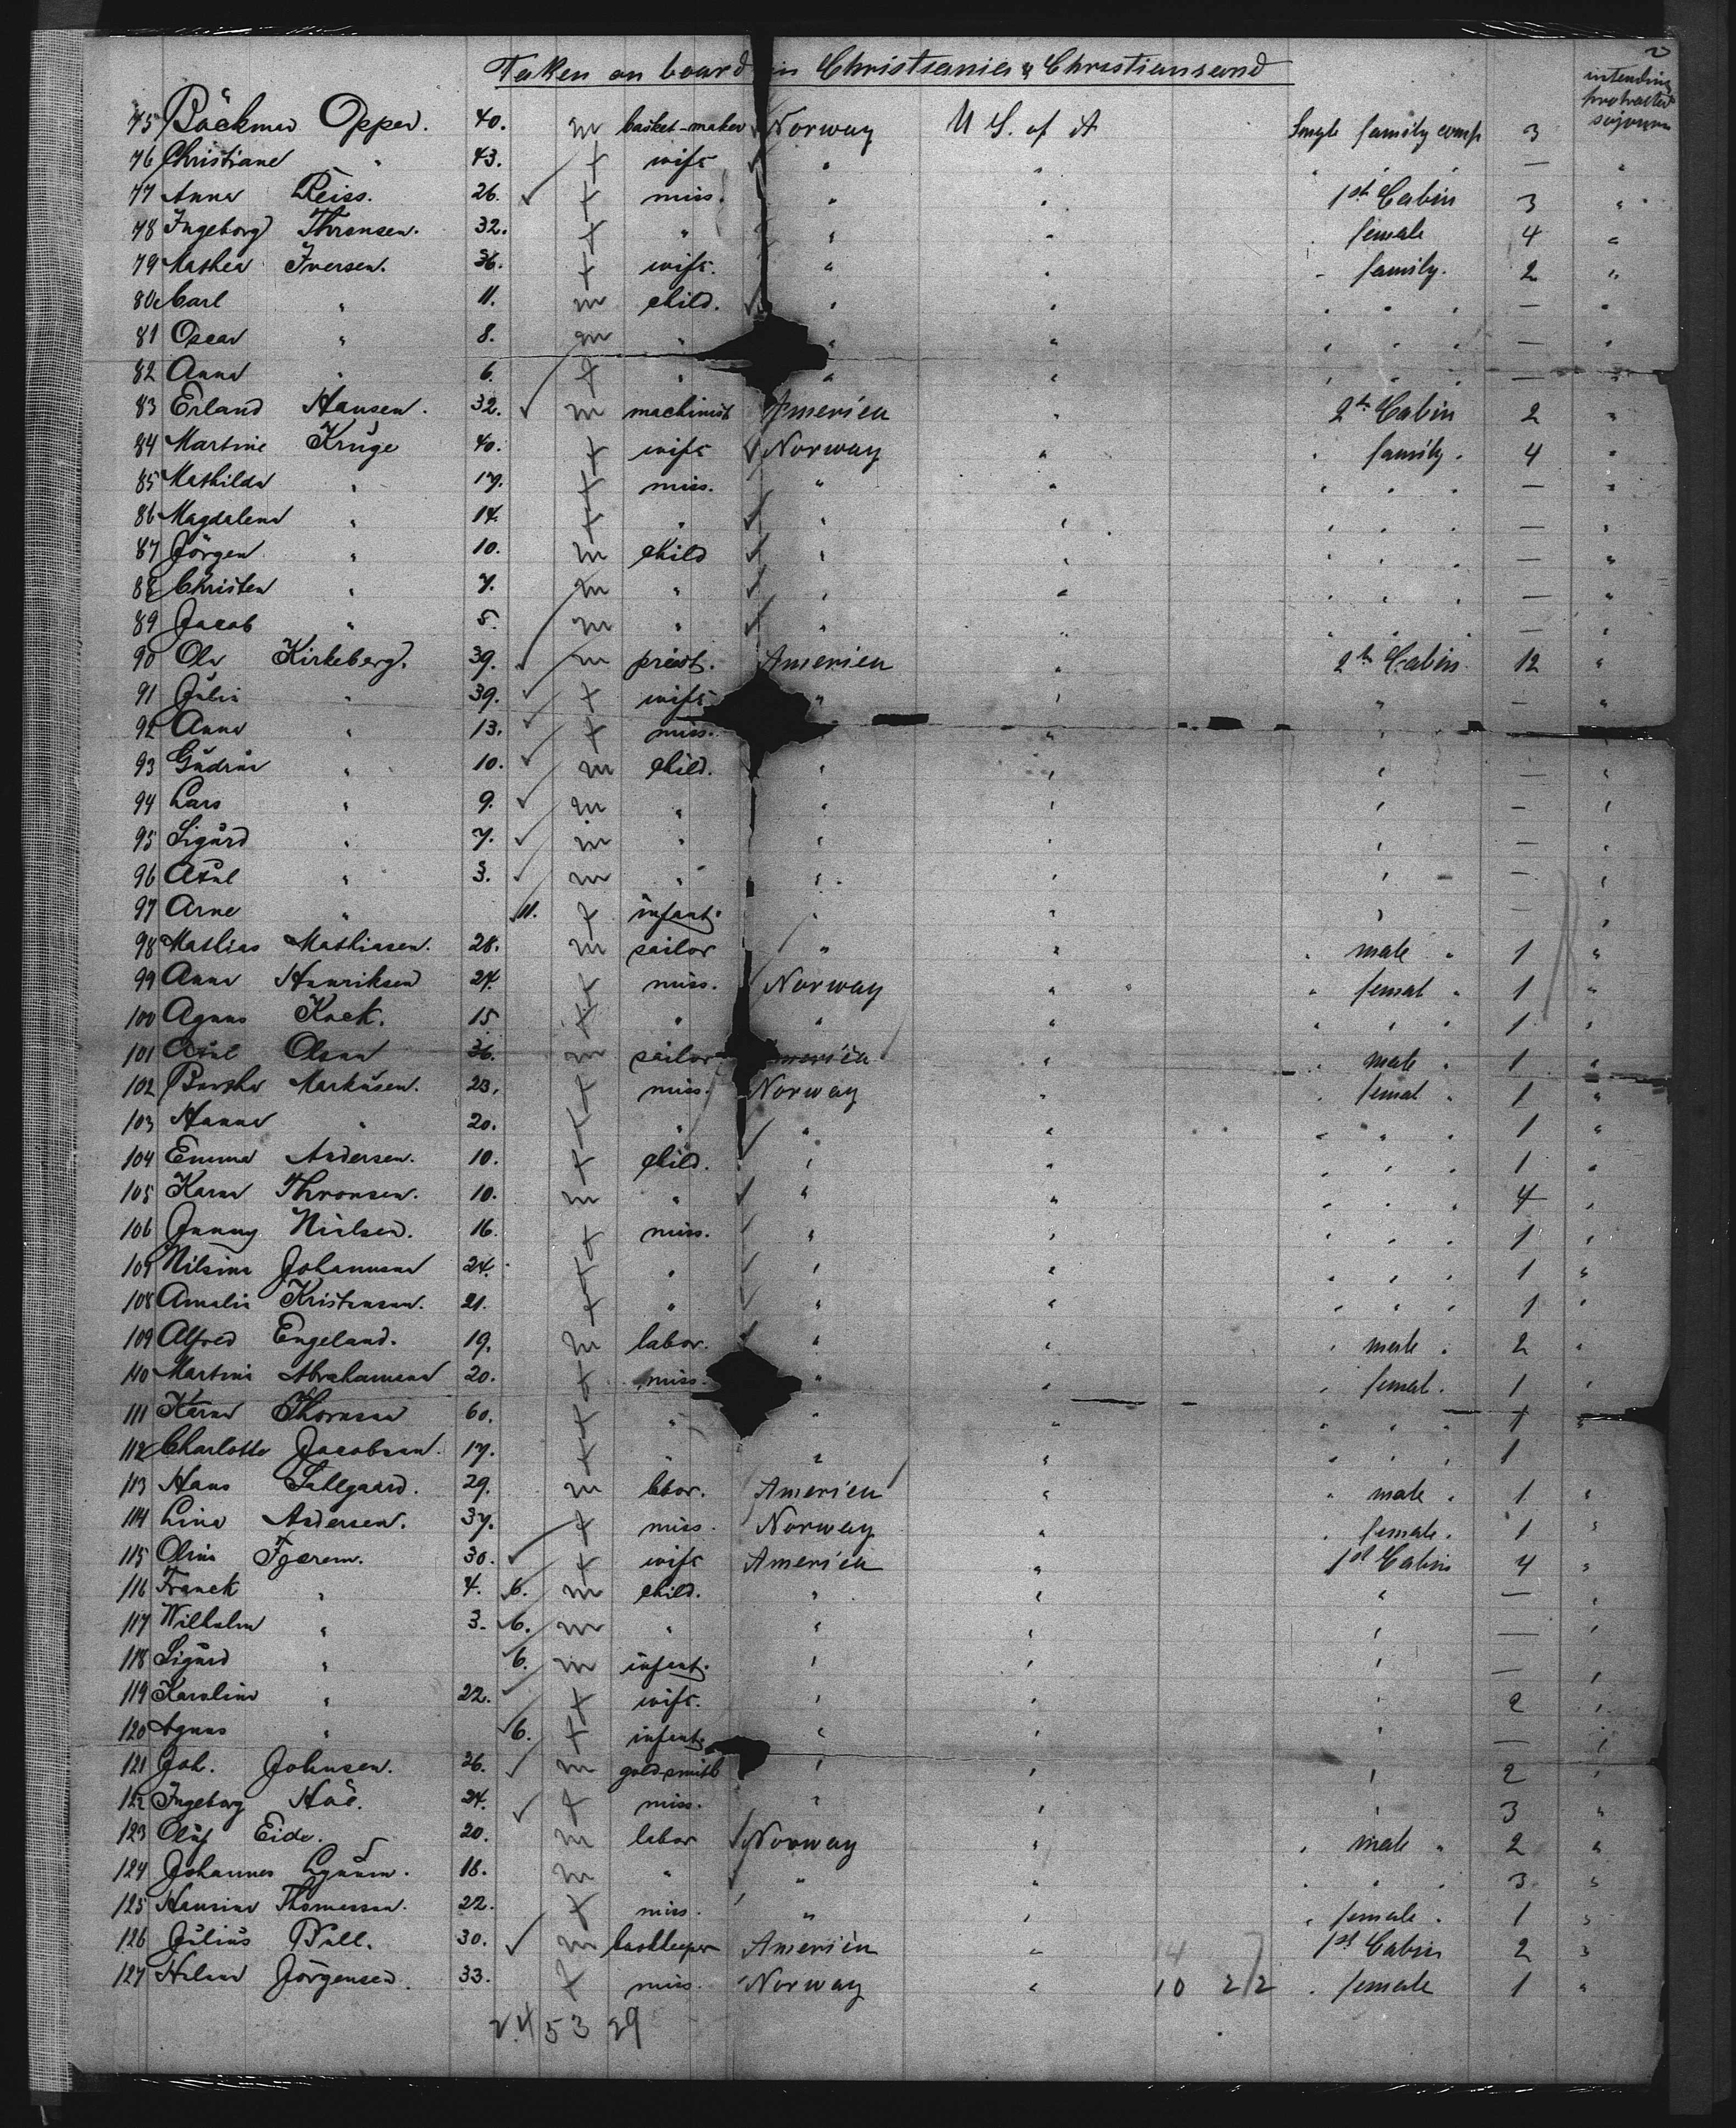 2
Taken on board in Christiania & Christiansand
intending protracted sojourn
75 Bäckman Oppen. 40. m basket-maker Norway U S. of A Single family comp 3
76 Christiane " 43. f wife " " " " " — "
77 Anna Reiss. 26. f miss. " " 1st Cabin 3 "
78 Ingeborg Thronsen. 32. f " " " " female 4 "
79 Mathea Iversen. 36. f wife. " " " family. 2 "
80 Carl " 11. m child. " " " " " — "
81 Oscar " 8. m " " " " " " — "
82 Anna " 6. f " " " " " " — "
83 Erland Hansen. 32. m machinist America " 2th Cabin 2 "
84 Martine Krüge 40. f wife Norway " " family. 4 "
85 Mathilda " 17. f miss. " " " " " — "
86 Magdalena " 14. f " " " " " " — "
87 Jörgen " 10. m child " " " " " — "
88 Christen " 7. m " " " " " " — "
89 Jacob " 5. m " " " " " " — "
90 Ole Kirkeberg. 39. m priest. America " 2th Cabin 12 "
91 Julia " 39. f wife " " " — "
92 Anna " 13. f miss. " " "
93 Gudrun " 10. m child. " " " — "
94 Lars " 9. m " " " " — "
95 Sigurd " 7. m " " " " — "
96 Axel " 3. m " " " " — "
97 Arne " 11. f infant. " " " — "
98 Mathias Mathiasen. 28. m sailor " " " male " 1 "
99 Anna Henriksen 24. f miss. Norway " " femal " 1 "
100 Agnes Kock. 15 f " " " " " " 1 "
101 Axel Olsen 36. m sailor America " " male " 1 "
102 Markusen. 23. f miss. Norway " " femal " 1 "
103 Hanna " 20. f " " " " " " 1 "
104 Emma Andersen. 10. f child. " " " " " 1 "
105 Karen Thronsen. 10. m " " " " " " 4 "
106 Jenny Nielsen. 16. f miss. " " " " " 1 "
107 Nilsine Johannesen 24. f " " " " " " 1 "
108 Amalia Kristensen. 21. f " " " " " " 1 "
109 Alfred Engeland. 19. m labor. " " " male " 2 "
110 Martine Abrahamsen 20. f miss. " " " femal. 1 "
111 Karen 60. f " " " " " " 1 "
112 Charlotte Jacobsen. 17. f " " " " " 1
113 Hans Sallgaard. 29. m labor. America " " male " 1 "
114 Lina Andersen. 37. f miss. Norway " " female. 1 "
115 Oline Fjerem. 30. f wife America " 1st Cabin 4 "
116 Franck " 4. 6. m child. " " " — "
117 Wilhelm " 3. 6. m " " " " — "
118 Sigurd " 6. m infant. " " " — "
119 Karoline " 22. f wife. " " " 2 "
120 Agnes " 6. f infant. " " " — "
121 Joh. Johnsen. 26. m goldsmith " " " 2 "
122 Ingeborg Höe. 24. f miss. " " " 3 "
123 Oluf Eide. 20. m labor Norway " " male " 2 "
124 Johannes 18. m " " " " " " 3 "
125 Hansine Thomassen. 22. f miss. " " " female. 1 "
126 Julius Bull. 30. m bookkeeper America " 14 1st Cabin 2 "
127 Helene Jörgensen. 33. f miss. Norway " 10 22 " female 1 "
24 53 29